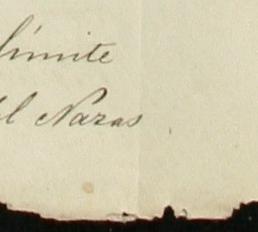 límite
el Nazas